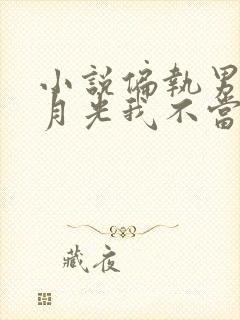 小說偏執男
月光我不當
藏夜